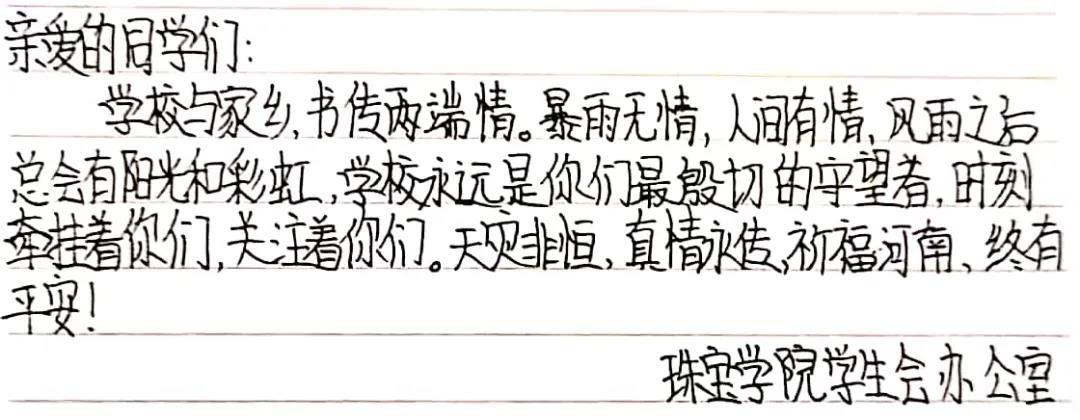 亲爱的同学们:
学校与家乡,书传两端情。暴雨无情,人间有情,风雨之后
总会有阳光和彩虹,学校永远是你们最殷切的守望者,时刻
牵挂着你们,关注着你们。天灾非恒,真情永传,祈福河南、终有
平安!
珠宝学院学生会办公室